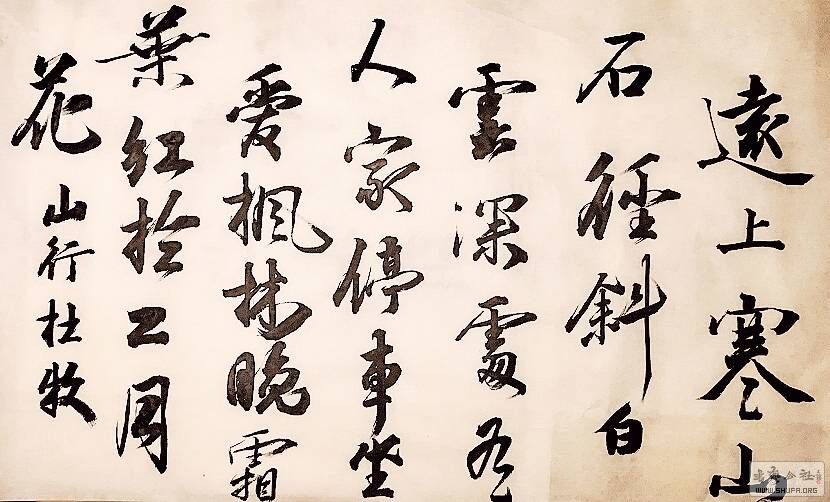 遠上寒山
石徑斜白
雲深處有
人家停車坐
愛楓林晚霜
葉紅於二月
花山行杜牧
WWW.SHUFA.ORG